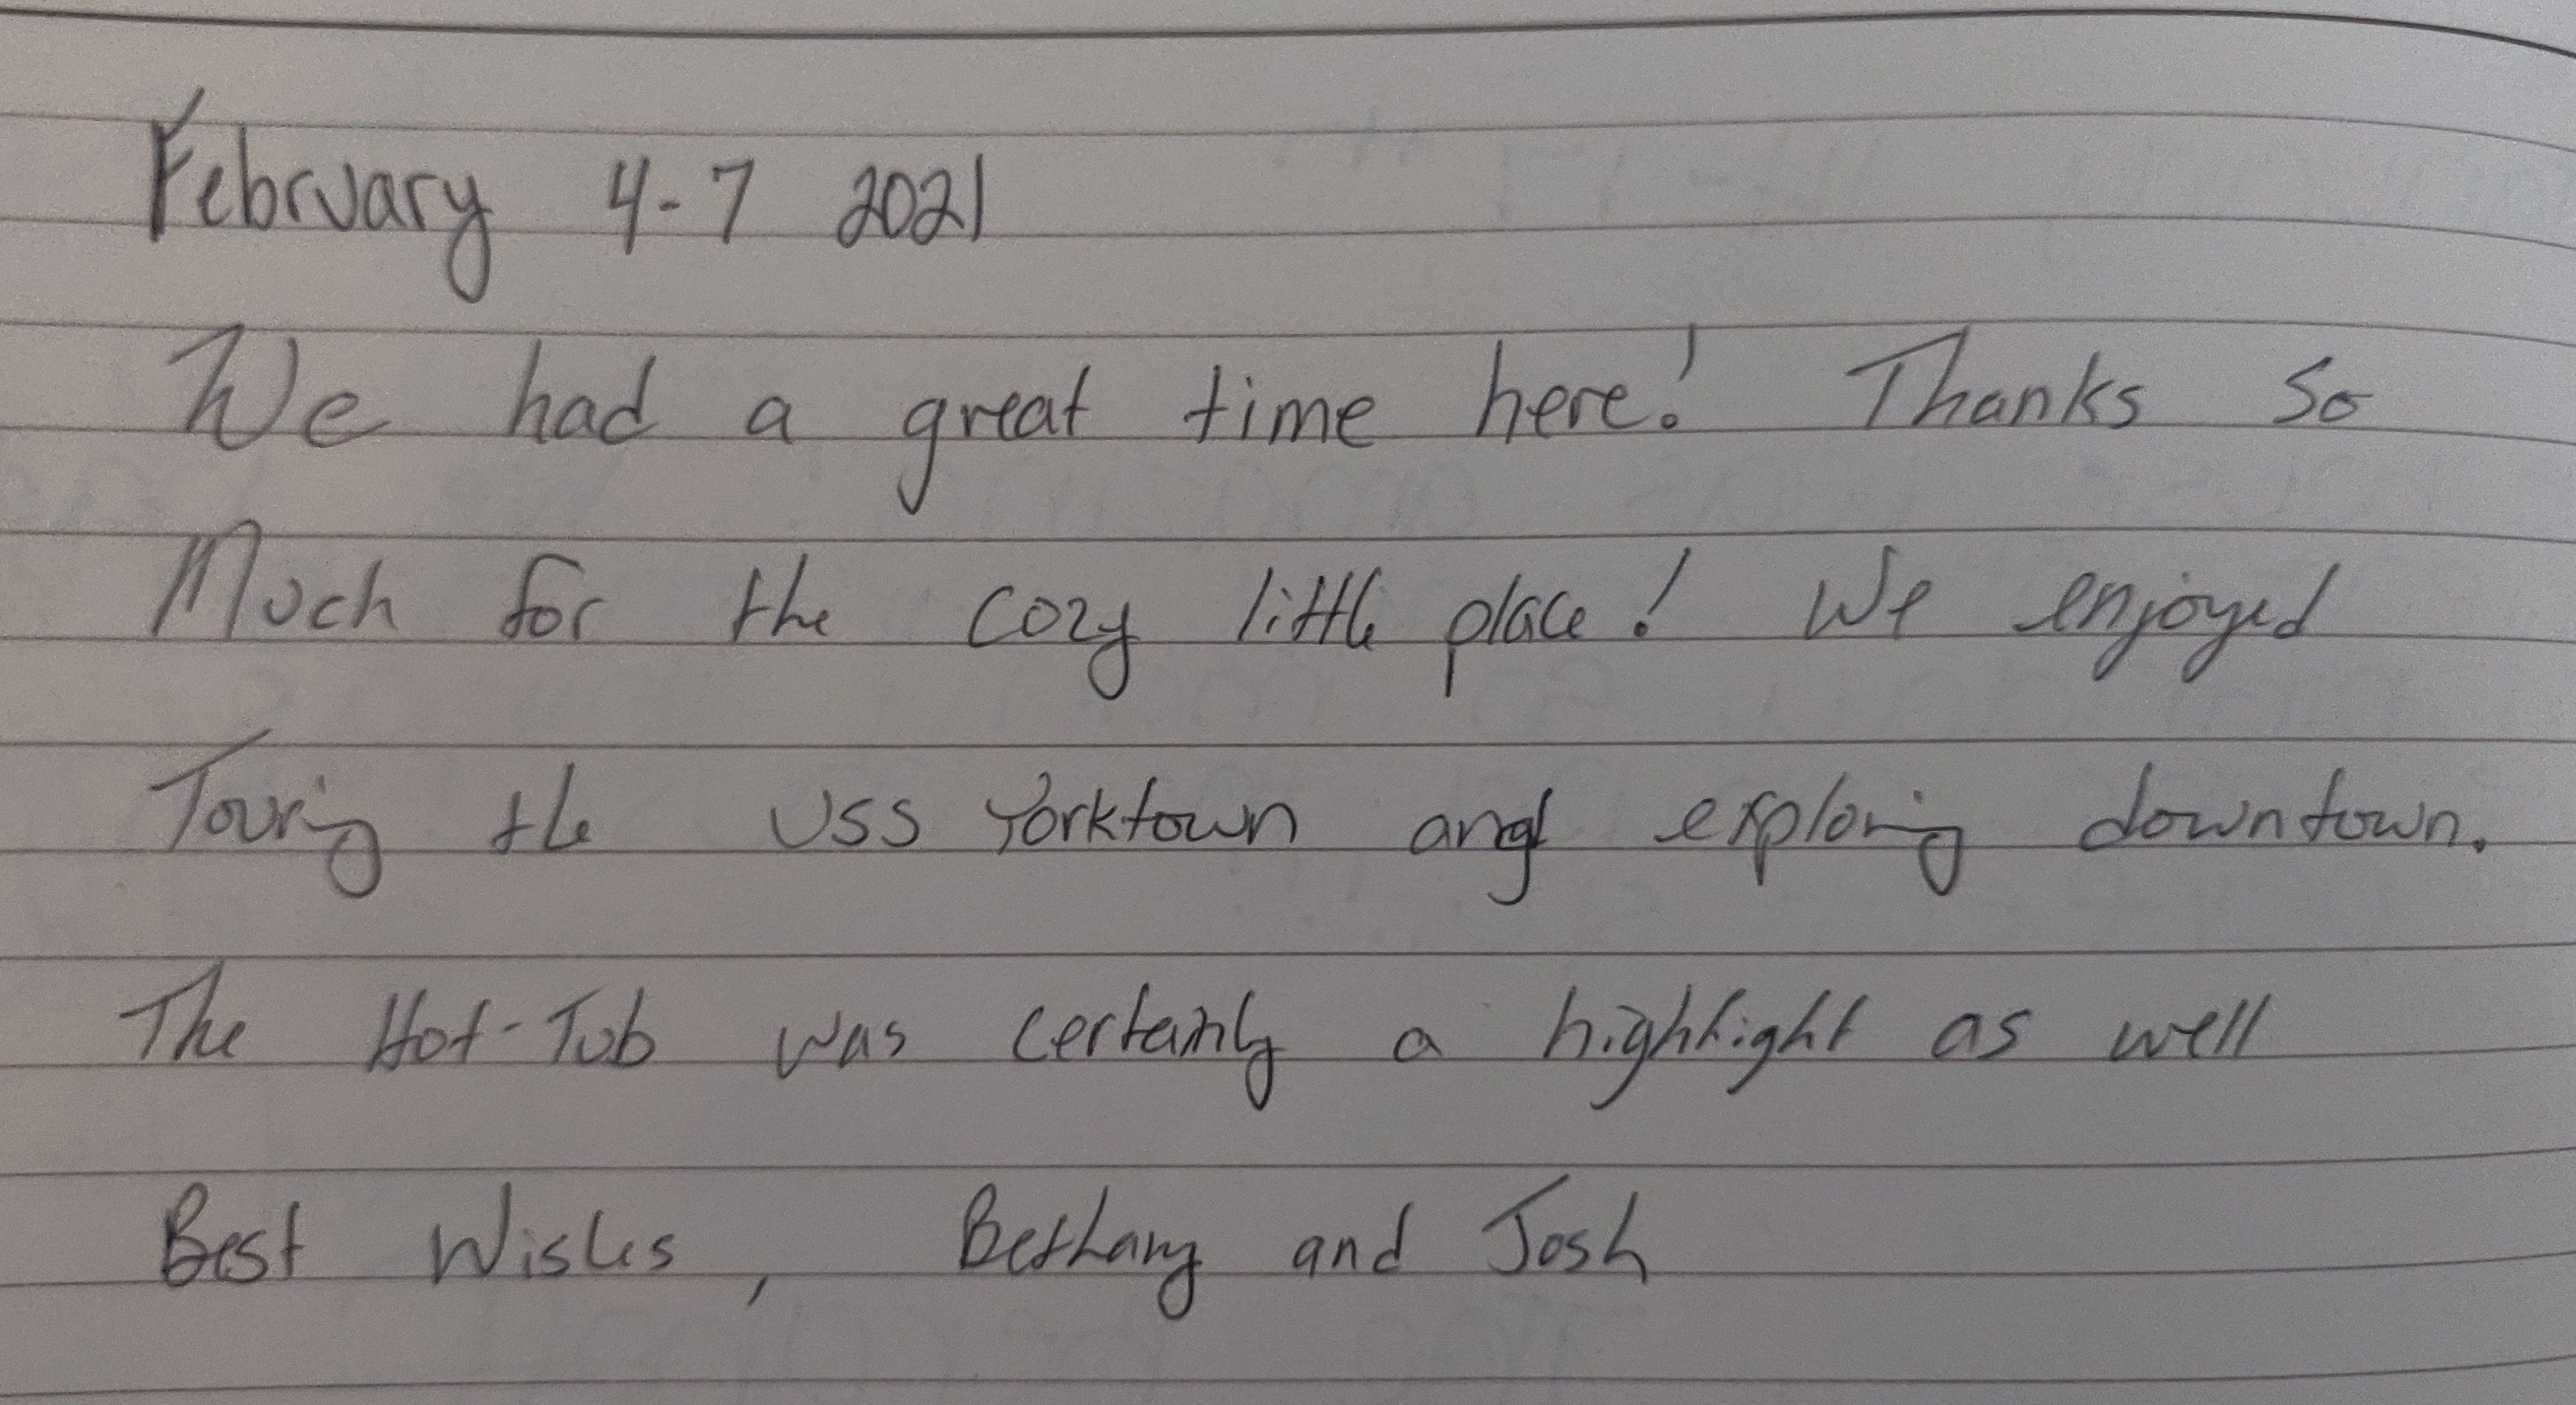 February 4-7 2021
We had a great time here! Thanks So
Much for the cozy little place! We enjoyed
Touring the USS Yorktown and exploring downtown.
The Hot-Tub was certainly a highlight as well
Best Wishes, Bethany and Josh